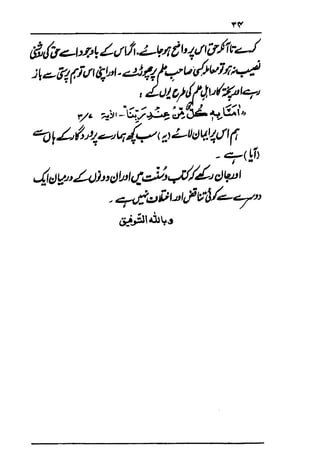 ۳۴
کرے تا آنکہ حق اس پر واضح ہو جائے، اگر اس کے باوجود اسے حق کی روشنی
نصیب نہ ہو تو معاملہ کسی صاحب علم پر چھوڑ دے۔ اور اپنی اس توہم پرستی سے باز
رہے اور پختہ کار اہل علم کی طرح یوں کہے :
"اٰمَنَّا بِهٖ كُلٌّ مِّنْ عِنْدِ رَبِّنَا" - الآیۃ ۳/۷
ہم اس پر ایمان لائے (یہ) سب کچھ ہمارے پروردگار کے ہاں سے
(آیا) ہے ۔
اور جان رکھے کہ کتاب و سنت میں اور ان دونوں کے درمیان ایک
دوسرے سے کوئی تناقض اور اختلاف نہیں ہے ۔
وباللہ التوفیق